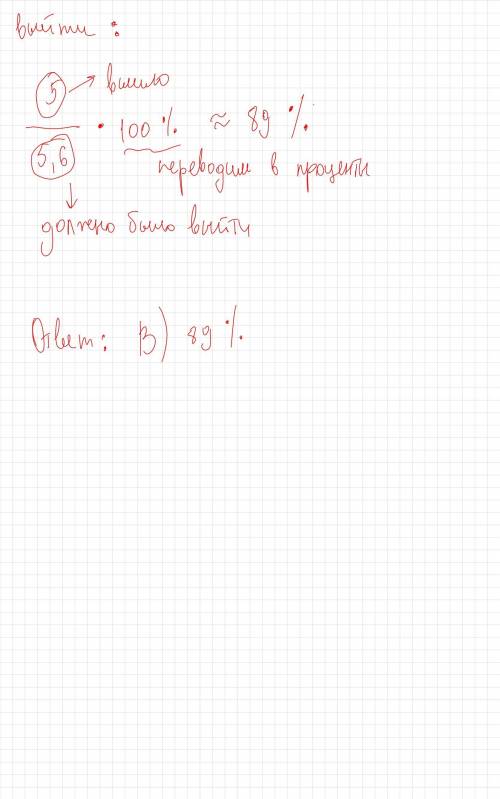 выйти :
5 → вышло
5,6 · 100 % ≈ 89 %
переводим в проценты
должно было выйти
Ответ: В) 89 %